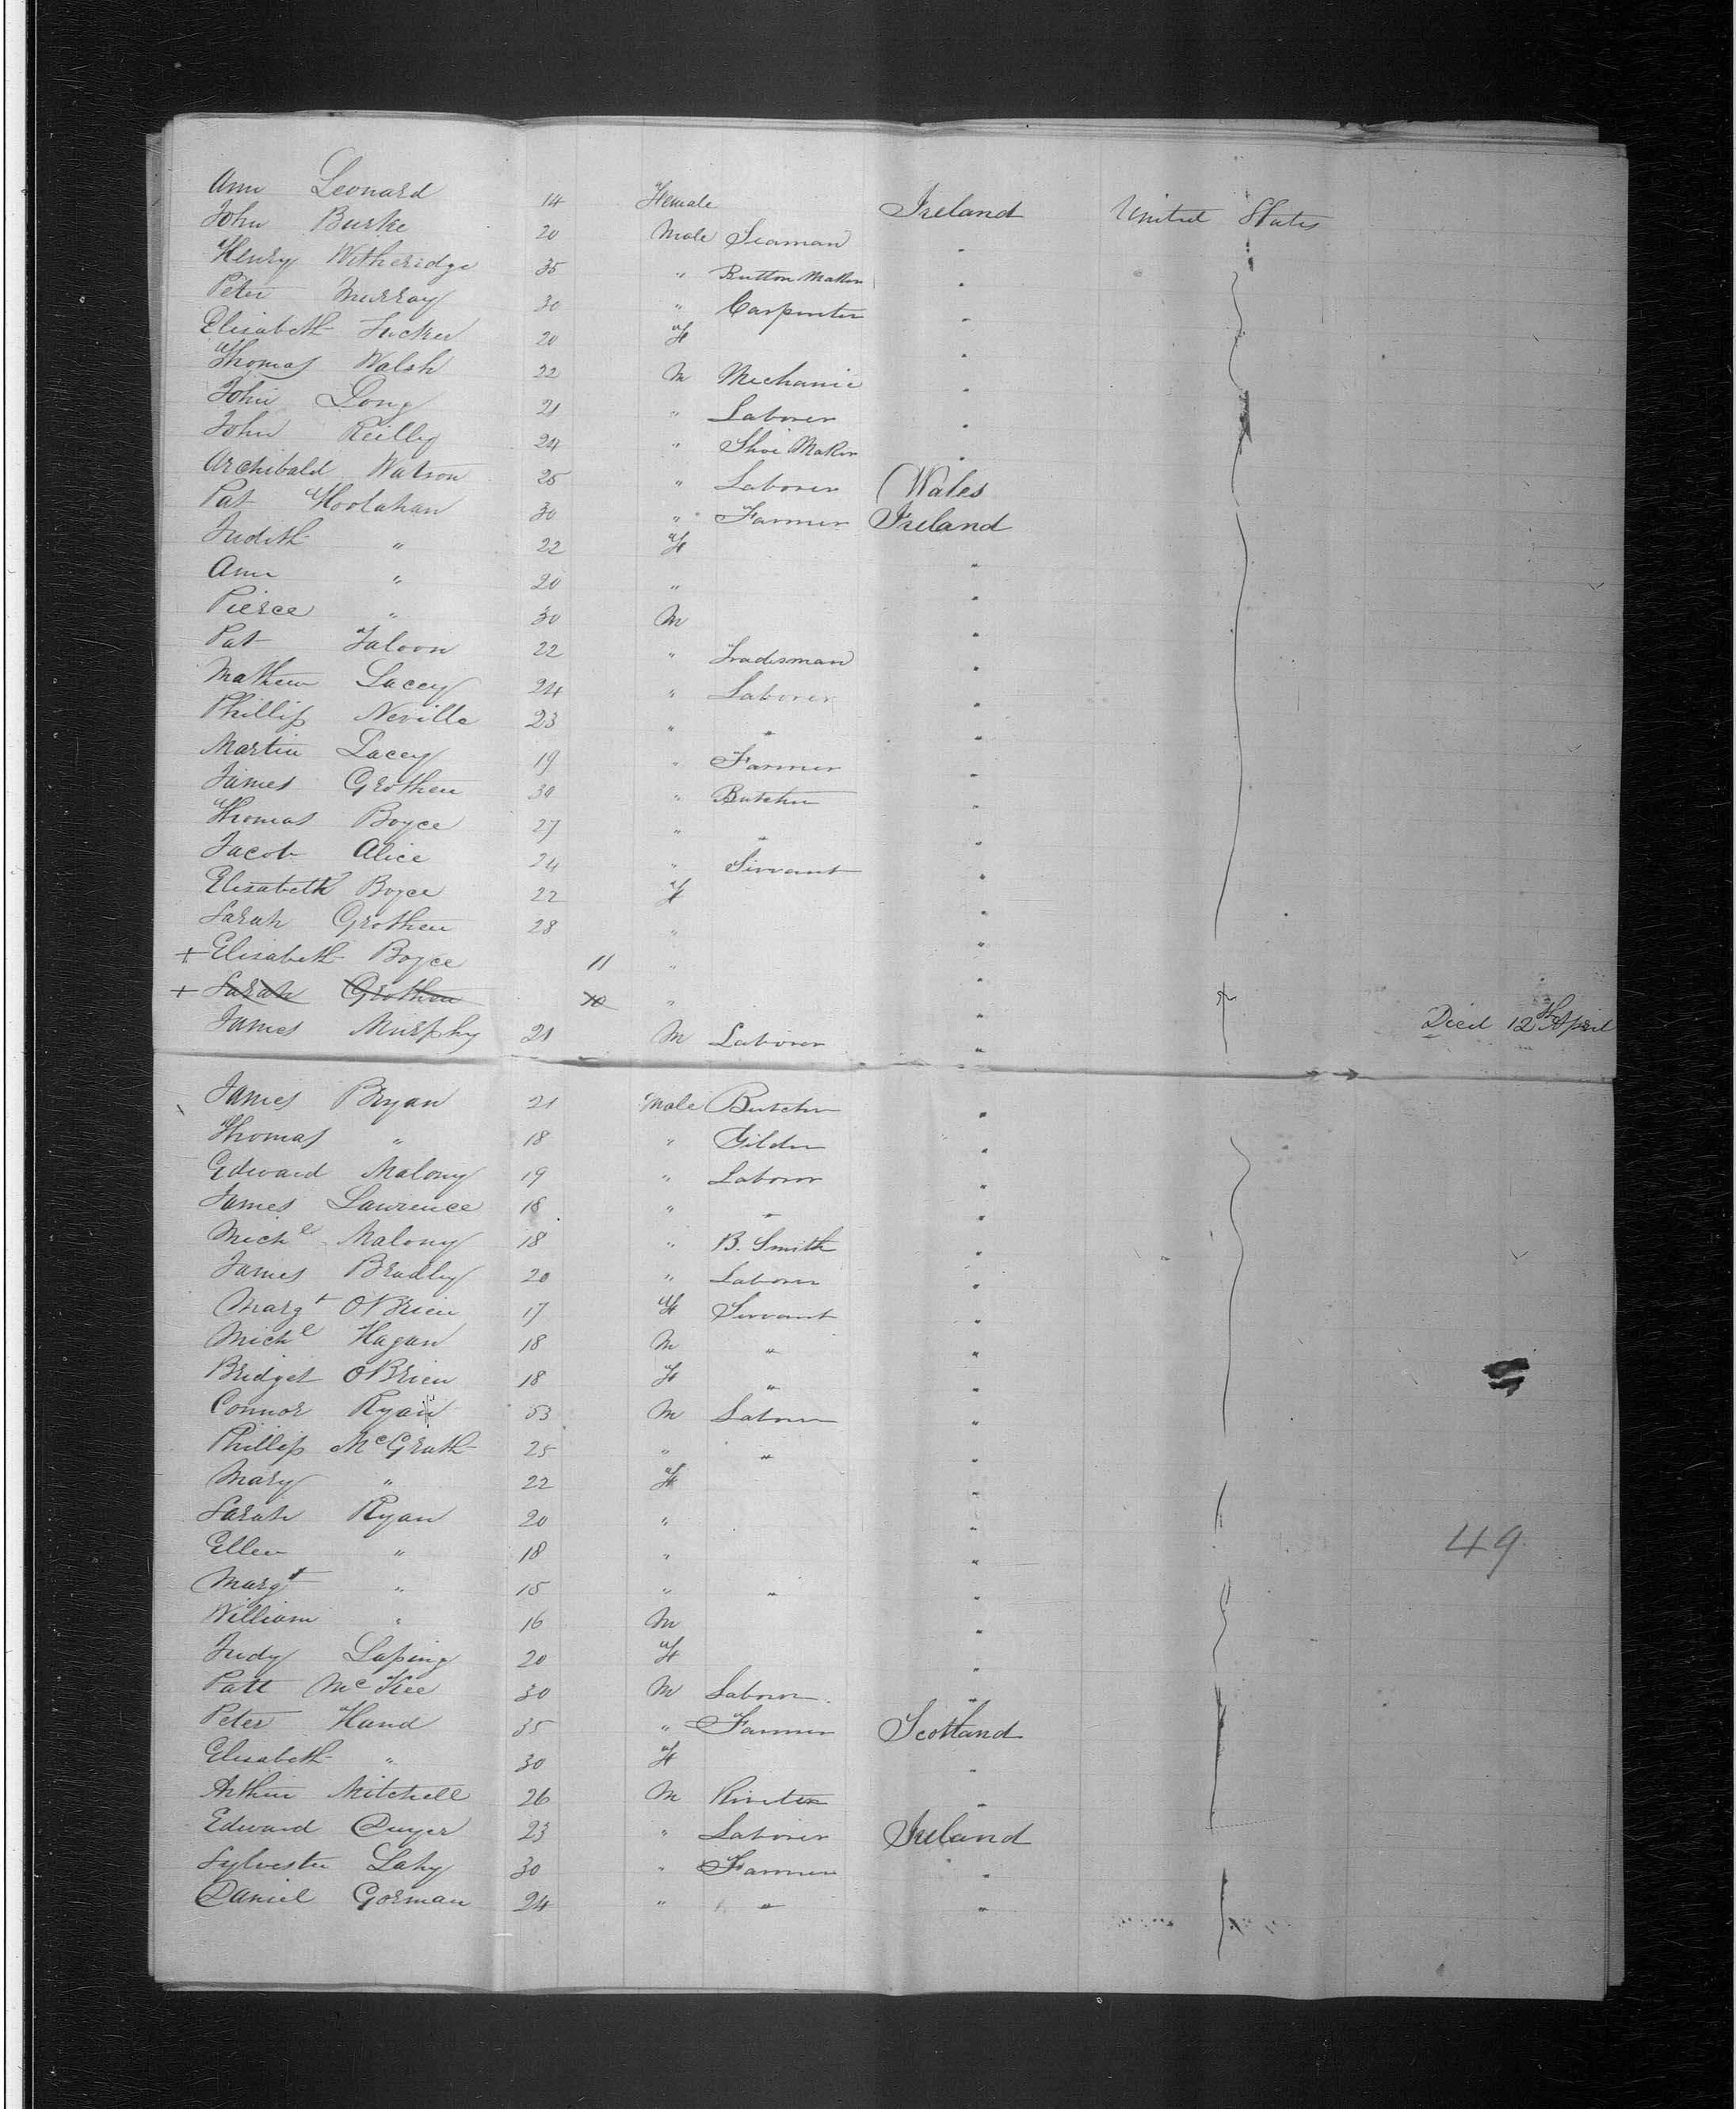 Ann Leonard 14 Female Ireland United States
John Burke 20 Male Seaman "
Henry Witheridge 35 " Button Maker "
Peter Murray 30 " Carpenter "
Elisabeth Tucker 20 F "
Thomas Walsh 22 M Mechanic "
John Long 21 " Laborer "
John Reilly 24 " Shoe Maker "
Archibald Watson 25 " Laborer Wales
Pat Hoolahan 30 " Farmer Ireland
Judith " 22 F "
Ann " 20 " "
Pierce " 30 M "
Pat Faloon 22 " Tradesman "
Mathew Lacey 24 " Laborer "
Phillip Neville 23 " " "
Martin Lacey 19 " Farmer "
James Grothen 30 " Butcher "
Thomas Boyce 27 " " "
Jacob Alice 24 " Servant "
Elisabeth Boyce 22 F "
Sarah Grothen 28 " "
+ Elisabeth Boyce 11 " "
+ Sarah Grothen 10 " "
James Murphy 21 M Laborer " Died 12th April
James Bryan 21 Male Butcher "
Thomas " 18 " Gilder "
Edward Malony 19 " Laborer "
James Lawrence 18 " " "
Michl Malony 18 " B. Smith "
James Bradley 20 " Laborer "
Margt OBrien 17 F Servant "
Michl Hagan 18 M " "
Bridget OBrien 18 F " "
Connor Ryan 53 M Laborer "
Phillip McGrath 25 " " "
Mary " 22 F "
Sarah Ryan 20 " "
Ellen " 18 " " 49
Margt " 15 " " "
William " 16 M "
Judy Laping 20 F "
Patt McKee 30 M Laborer "
Peter Hand 35 " Farmer Scotland
Elisabeth " 30 F "
Arthur Mitchell 26 M Riveter "
Edward Dwyer 23 " Laborer Ireland
Sylvester Lahy 30 " Farmer "
Daniel Gorman 24 " " "